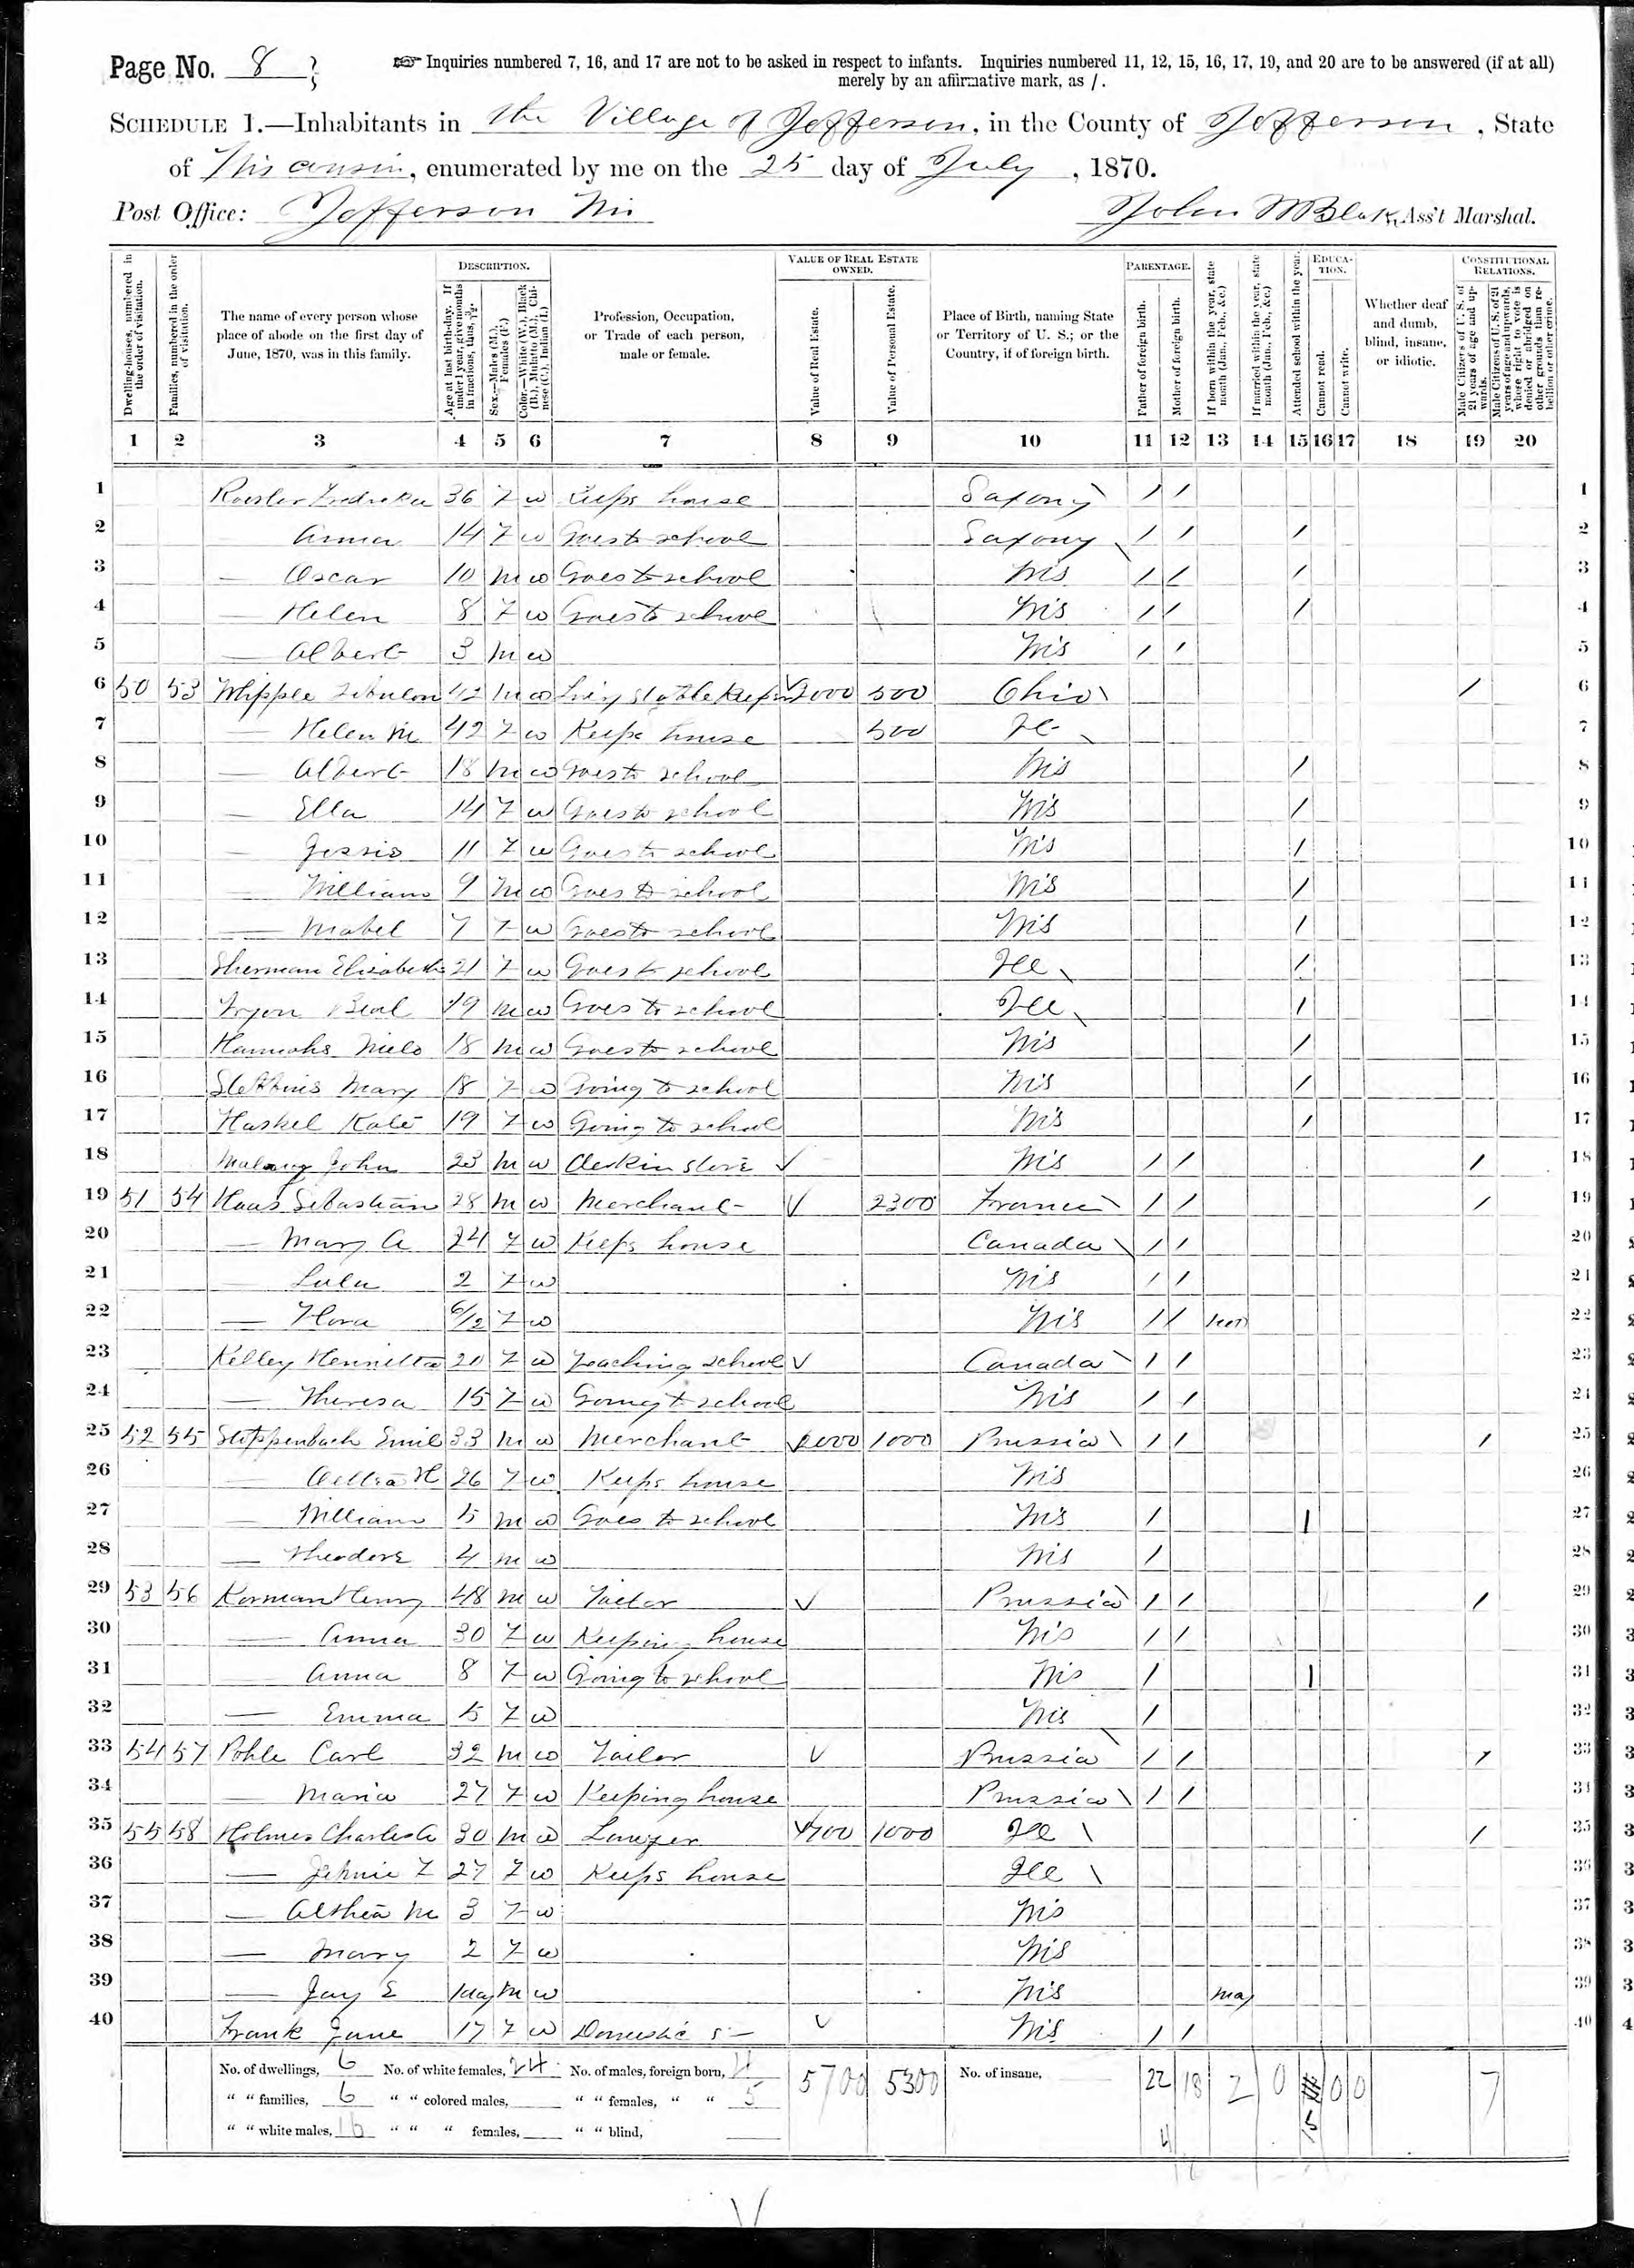 Page No. 8
Inquiries numbered 7, 16, and 17 are not to be asked in respect to infants. Inquiries numbered 11, 12, 15, 16, 17, 19, and 20 are to be answered (if at all)
merely by an affirmative mark, as /.
SCHEDULE 1.—Inhabitants in the Village of Jefferson, in the County of Jefferson, State
of Wisconsin, enumerated by me on the 25 day of July, 1870.
Post Office: Jefferson Wis John M Ass't Marshal.
Dwelling-houses, numbered in the order of visitation.
Families, numbered in the order of visitation.
The name of every person whose place of abode on the first day of June, 1870, was in this family.
DESCRIPTION.
Age at last birth-day. If under 1 year, give months in fractions, thus, 3/12.
Sex.—Males (M.), Females (F.)
Color.—White (W.), Black (B.), Mulatto (M.), Chinese (C.), Indian (I.)
Profession, Occupation, or Trade of each person, male or female.
VALUE OF REAL ESTATE OWNED.
Value of Real Estate.
Value of Personal Estate.
Place of Birth, naming State or Territory of U. S.; or the Country, if of foreign birth.
PARENTAGE.
Father of foreign birth.
Mother of foreign birth.
If born within the year, state month (Jan., Feb., &c.)
If married within the year, state month (Jan., Feb., &c.)
Attended school within the year.
EDUCATION.
Cannot read.
Cannot write.
Whether deaf and dumb, blind, insane, or idiotic.
CONSTITUTIONAL RELATIONS.
Male Citizens of U. S. of 21 years of age and upwards.
Male Citizens of U. S. of 21 years of age and upwards, whose right to vote is denied or abridged on other grounds than rebellion or other crime.
1 2 3 4 5 6 7 8 9 10 11 12 13 14 15 16 17 18 19 20
1 Fredricka 36 F w Keeps house Saxony / / 1
2 — Anna 14 F w Goes to school Saxony / / / 2
3 — Oscar 10 M w Goes to school Wis / / / 3
4 — Helen 8 F w Goes to school Wis / / / 4
5 — Albert 3 M w Wis / / 5
6 50 53 Whipple Zebulon 42 M w Livery Stable Keeper 2000 500 Ohio / 6
7 — Helen M 42 F w Keeps house 500 7
8 — Albert 18 M w Goes to school Wis / 8
9 — Ella 14 F w Goes to school Wis / 9
10 — Jessie 11 F w Goes to school Wis / 10
11 — William 9 M w Goes to school Wis / 11
12 — Mabel 7 F w Goes to school Wis / 12
13 Sherman Elizabeth 21 F w Goes to school Ill / 13
14 19 M w Goes to school Ill / 14
15 Milo 18 M w Goes to school Wis / 15
16 Mary 18 F w Going to school Wis / 16
17 Haskel Kate 19 F w Going to school Wis / 17
18 John 23 M w Clerk in store Wis / / / 18
19 51 54 Haas Sebastian 28 M w Merchant 2300 France / / / 19
20 — Mary A 24 F w Keeps house Canada / / 20
21 — Lulu 2 F w Wis / / 21
22 — Flora 6/12 F w Wis / / 22
23 Kelley Henrietta 20 F w Teaching school Canada / / 23
24 — Theresa 15 F w Going to school Wis / / 24
25 52 55 Stoppenbach Emil 33 M w Merchant 2000 1000 Prussia / / / 25
26 26 F w Keeps house Wis 26
27 — William 5 M w Goes to school Wis / / 27
28 — Theodore 4 M w Wis / 28
29 53 56 Korman Henry 48 M w Tailor Prussia / / / 29
30 — Anna 30 F w Keeping house Wis / / 30
31 — Anna 8 F w Going to school Wis / / 31
32 — Emma 5 F w Wis / 32
33 54 57 Pohle Carl 32 M w Tailor Prussia / / / 33
34 — Maria 27 F w Keeping house Prussia / / 34
35 55 58 Holmes Charles A 30 M w Lawyer 1700 1000 Ill / 35
36 — Jennie F 27 F w Keeps house Ill 36
37 — Althea M 3 F w Wis 37
38 — Mary 2 F w Wis 38
39 — Jay E M w Wis May 39
40 Frank Jane 17 F w Domestic Wis / / 40
No. of dwellings, 6 No. of white females, 24 No. of males, foreign born, 4 5700 5300 No. of insane, 22 18 2 0 15 0 0 7
" " families, 6 " " colored males, " " females, " " 5
" " white males, 16 " " " females, " " blind,